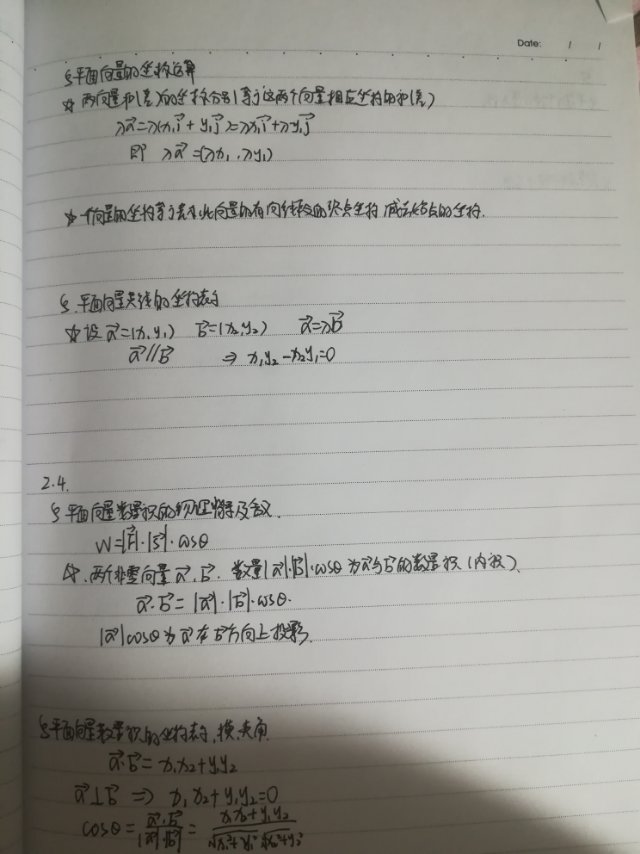 Date: / /
§平面向量的坐标运算
☆ 两向量和(差)的坐标分别等于这两个向量相应坐标的和(差)
λa⃗=λ(x₁i⃗+y₁j⃗)=λx₁i⃗+λy₁j⃗
即 λa⃗=(λx₁,λy₁)
☆ 一个向量的坐标等于表示此向量的有向线段的终点坐标减去始点的坐标.
§.平面向量共线的坐标表示
☆ 设 a⃗=(x₁,y₁) b⃗=(x₂,y₂) a⃗=λb⃗
a⃗//b⃗ ⇒ x₁y₂-x₂y₁=0
2.4.
§平面向量数量积的物理背景及含义.
W=|F⃗|·|S⃗|·cosθ
☆.两个非零向量 a⃗.b⃗.数量|a⃗|·|b⃗|·cosθ为a⃗与b⃗的数量积(内积).
a⃗·b⃗=|a⃗|·|b⃗|·cosθ.
|a⃗|cosθ为a⃗在b⃗方向上投影.
§平面向量数量积的坐标表示,模,夹角
a⃗·b⃗=x₁x₂+y₁y₂
a⃗⊥b⃗ ⇒ x₁x₂+y₁y₂=0
cosθ=a⃗·b⃗/|a⃗|·|b⃗|=x₁x₂+y₁y₂/√x₁²+y₁²·√x₂²+y₂²